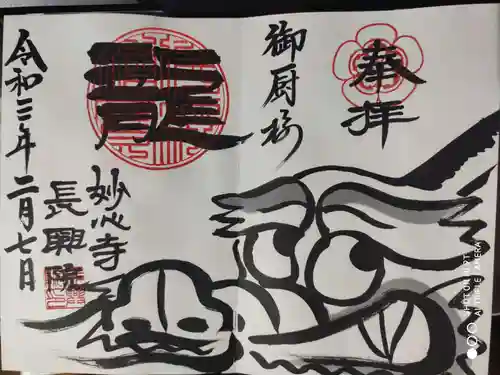 奉拝
御厨杉
龍
妙心寺
長興院
令和三年二月七日
SHOT ON MI 10T
AI TRIPLE CAMERA